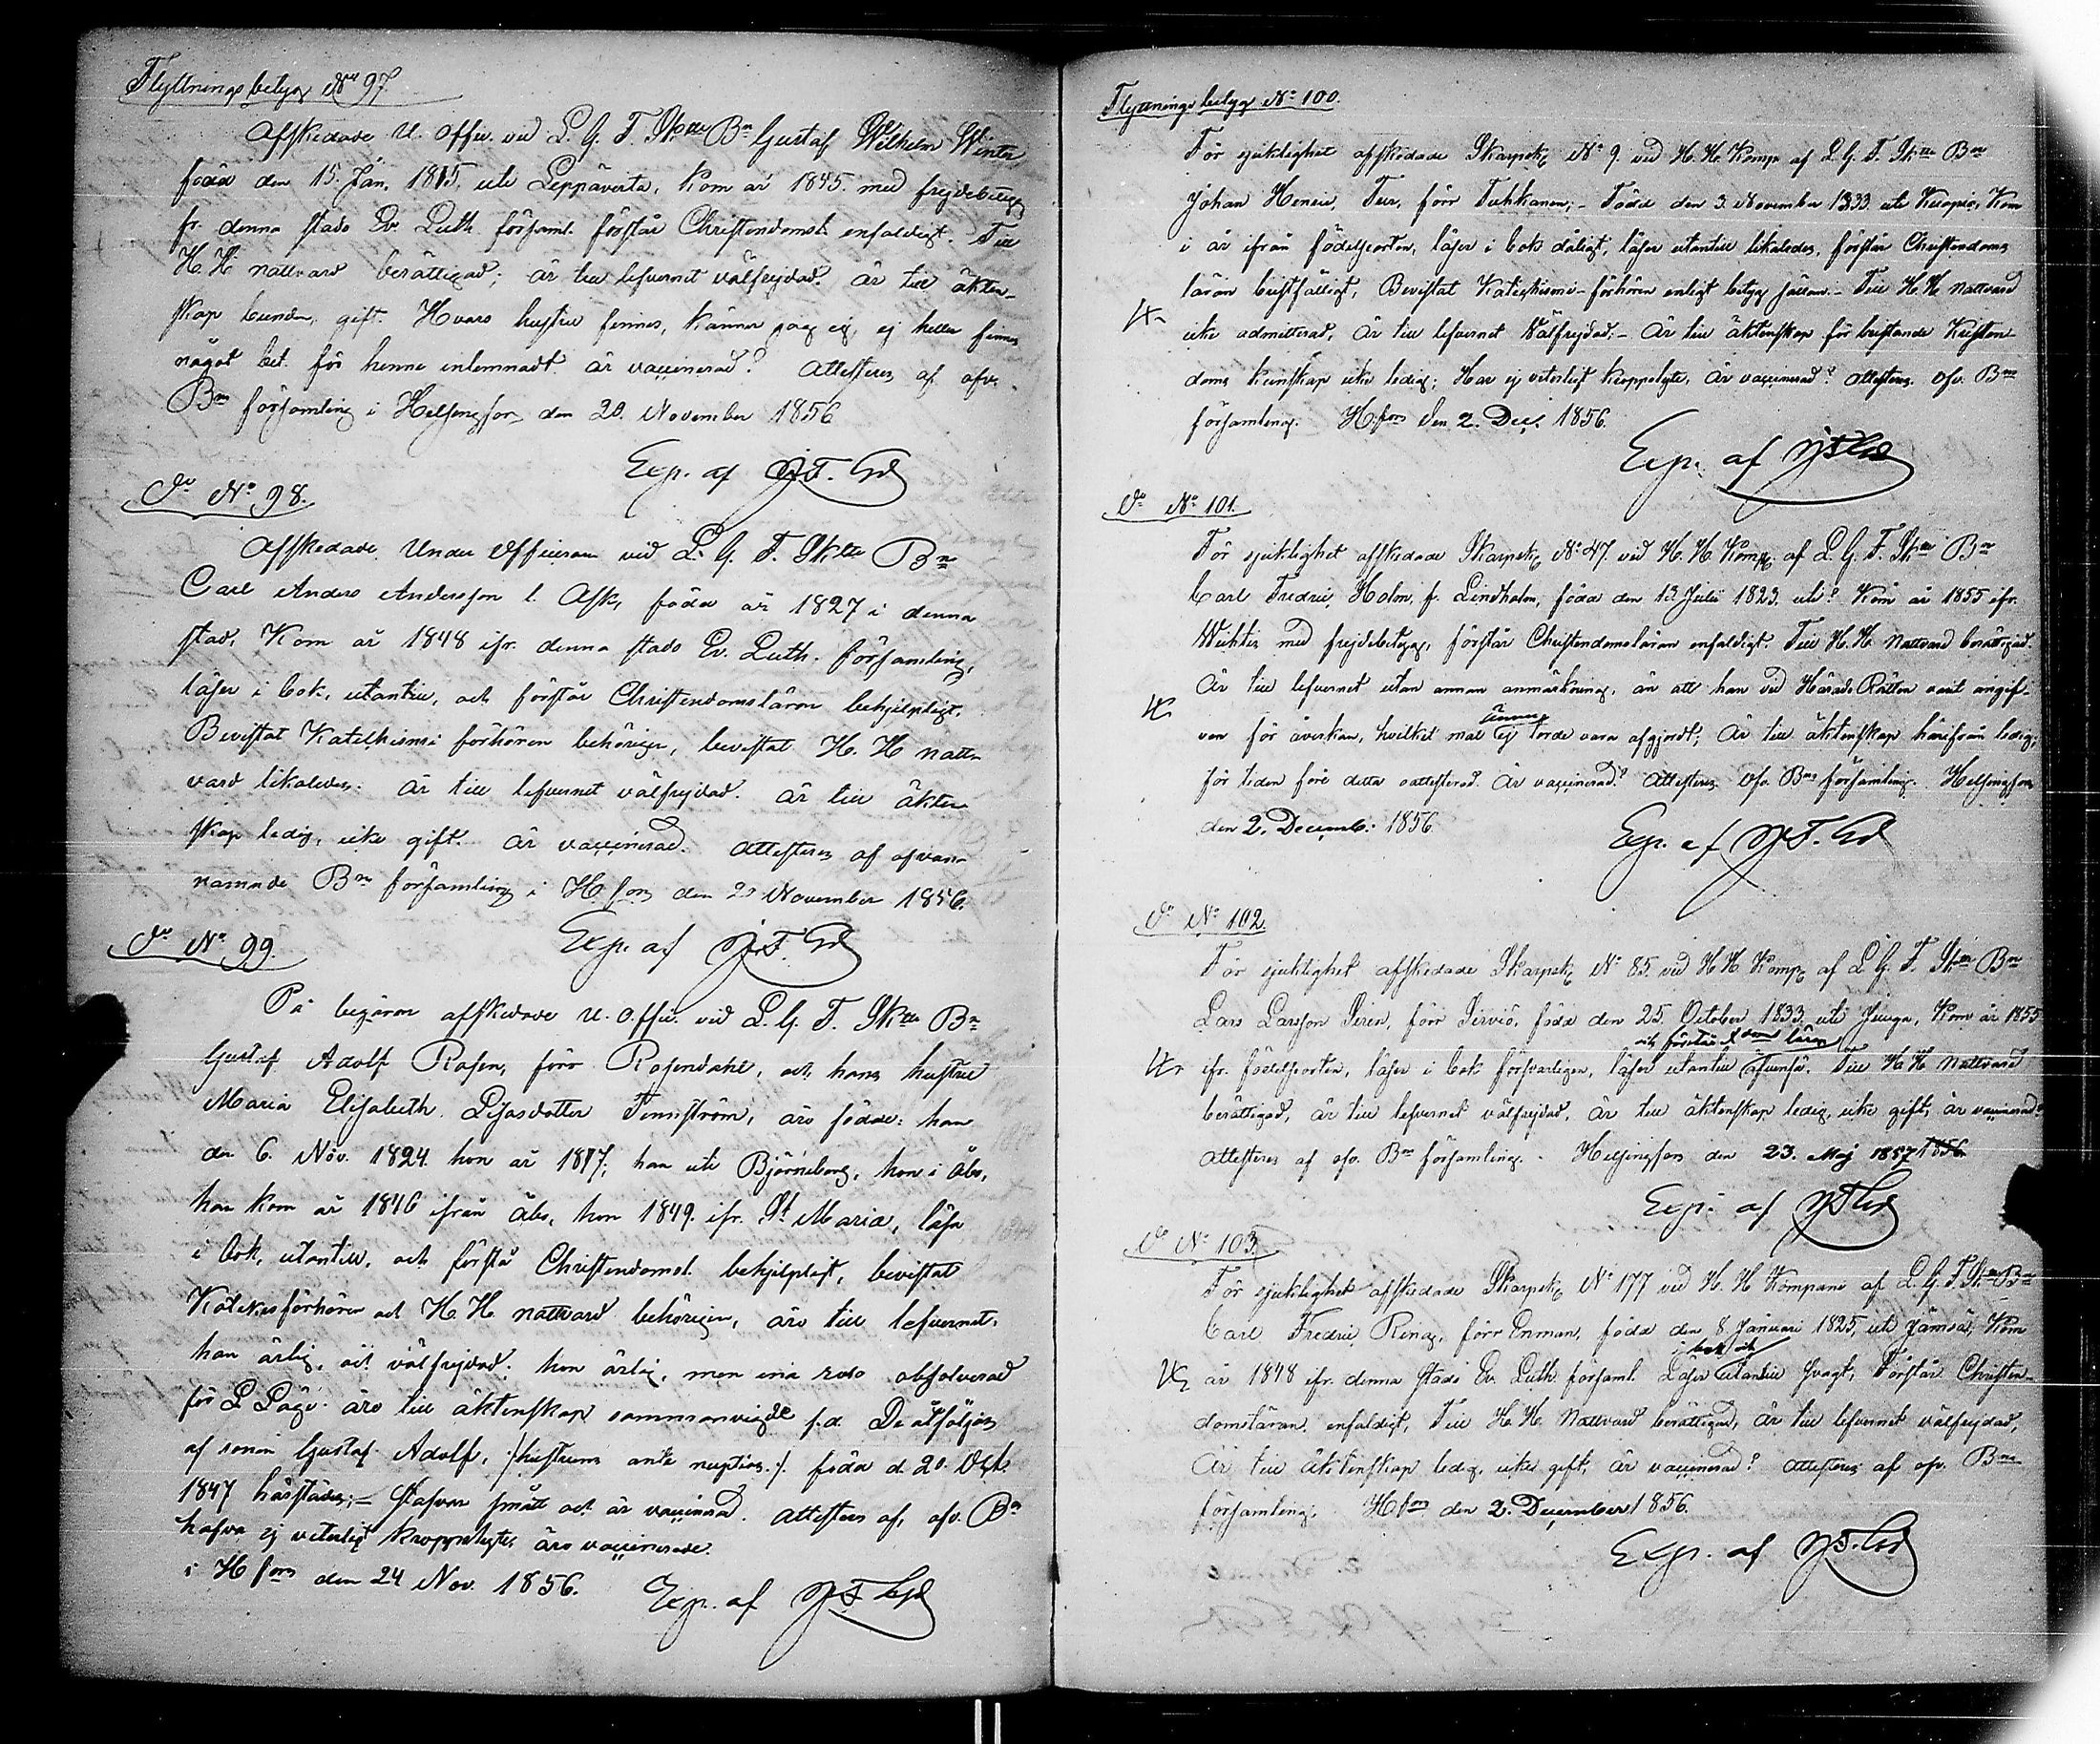 Flyttningsbetyg No 97.
Afskedade U. Offic. vid L. G. F. Sktte Bn Gustaf Wilhelm Winter
född den 15. Jan. 1815. uti Leppävirta, kom år 1845. med frejdebetyg
fr. denna stads Ev. Luth. församl. förstår Christendomsl. enfaldigt. Till
H. H. nattvard berättigad; är till lefvernet välfrejdad. är till äkten-
skap bunden, gift. Hvars hustru finnes, känner jag ej, ej heller finnes
något bet. för henne inlemnadt är vaccinerad? Attesteras af ofv.
Bns församling i Helsingfors den 20. November 1856
Exp. af
Do No 98.
Afskedade Under Officeren vid L. G. F. Sktte Bn
Carl Anders Andersson l. Ask, född år 1827 i denna
stad, Kom år 1848 ifr. denna stads Ev. Luth. församling,
läser i bok, utantill, och förstår Christendomsläran behjelpligt.
Bevistat Katekismi förhören behörigen, bevistat H. H natt-
vard likaledes. är till lefvernet välfrejdad. är till äkten-
skap ledig, icke gift. är vaccinerad. Attesteras af ofvan-
nämnde Bns församling i H.fors den 20 November 1856.
Exp. af
Do No 99.
På begäran afskedade U. Offic. vid L. G. F. Sktte Bn
Gustaf Adolf Rosen, förr Rosendahl, och hans hustru
Maria Elisabeth Esajasdotter Tennström, äro födde: han
den 6. Nov. 1824. hon år 1817; han uti Björneborg, hon i Åbo,
han kom år 1846 ifrån Åbo, hon 1849. ifr. St Marie, läsa
i bok, utantill, och förstå Christendomsl. behjelpligt, bevistat
Katekesförhören och H. H. nattvard behörigen, äro till lefvernet,
han ärlig, och välfrejdad; hon ärlig, men absolverad
för L Läge. äro till äktenskap sammanvigde s.d. De åtföljas
af sonen Gustaf Adolf, /:hustruns ante nuptias:/. född d. 20. Oct.
1847 härstädes; – stafvar smått och är vaccinerad. Attesteras af, ofv. Bn
hafva ej veterligt kroppslyte, äro vaccinerade.
i H fors den 24 Nov. 1856.
Exp. af
Flyttningsbetyg No 100.
För sjuklighet afskedade Skarpsk. No 9. vid H. H. Komp. af L. G. F. Sktte Bn
Johan Henric, förr Tuhkanen; – Född den 3. November 1833. uti Kuopio, Kom
i år ifrån födelseorten, läser i bok dåligt, läser utantill likaledes, förstår Christendoms
läran bristfälligt, Bevistat Katechismi-förhören enligt betyg sällan. – Till H. H. nattvard
icke admitterad, är till lefvernet Välfrejdad. – är till äktenskap för bristande Kristen-
doms kunskap icke ledig; Har ej veterligt kroppslyte, är vaccinerad? Attesteras. ofv. Bns
församling. H.fors den 2. Dec. 1856.
Exp. af
Do No 101.
För sjuklighet afskedade Skarpsk. No 47. vid H. H. Komp. af L. G. F. Sktte Bn
Carl Fredric, Holm, f. Lindholm, född den 13. Julii 1823. uti? Kom år 1855 ifr.
Wichtis med frejdebetyg, förstår Christendomsläran enfaldigt. Till H. H. Nattvard berättigad.
Är till lefvernet utan annan anmärkning, än att han vid Härads Rätten varit angif-
ven för åverkan, hvilket mål ej ännu torde vara afgjordt; Är till äktenskap härifrån ledig,
för tiden före detta oattesterad. Är vaccinerad? Attesteras ofv. Bns församling. Helsingfors
den 2. Decemb: 1856.
Exp. af
Do No 102.
För sjuklighet afskedade Skarpsk. No 85. vid H H. Komp. af L. G. F. Sktte Bn
Lars Larsson Siren, förr Sirviö, född den 25. October 1833. uti Jeuga, Kom år 1855
och förstår dom läran
ifr. födelseorten, läser i bok försvarligen, läser utantill Till H. H. Nattvard
berättigad, är till lefvernet välfrejdad, är till äktenskap ledig, icke gift, är vaccinerad?
Attesteras af ofv. Bns församling. Helsingfors den 23. Maj 1857 1856.
Exp. af
Do No 103.
För sjuklighet afskedade Skarpsk. No 177 vid H. H Kompani af L. G. F. Sktte Bn
Carl Fredric Ring, förr Enman, född den 8 Januari 1825, uti Jämsä, Kom
i bok och
år 1848 ifr. denna stads Ev. Luth. församl. Läser utantill svagt, Förstår Christen-
domsläran enfaldigt, Till H. H. Nattvard berättigad, är till lefvernet välfrejdad,
är till äktenskap ledig, icke gift, är vaccinerad? Attesteras af ofv. Bns
församling. H.fors den 2. December 1856.
Exp. af